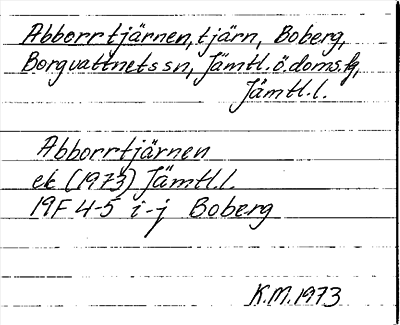 Abborrtjärnen, tjärn, Boberg,
Borgvattnets sn, Jämtl. ö. doms.fg,
Jämtl. l.
Abborrtjärnen
ek (1973) Jämtl. l.
19F 4-5 i-j Boberg
K.M. 1973